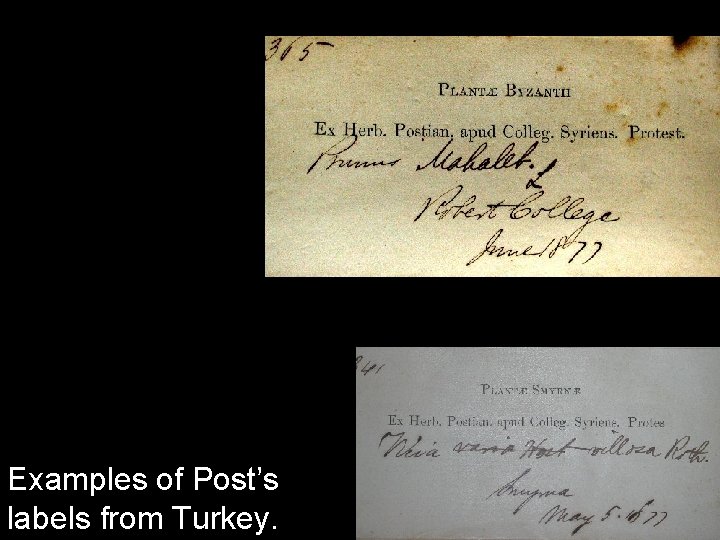 365
PLANTÆ BYZANTII
Ex Herb. Postian. apud Colleg. Syriens. Protest.
Prunus Mahaleb. L
Robert College
June 1877
341
PLANTÆ SMYRNÆ
Ex Herb. Postian. apud Colleg. Syriens. Protes
Vicia varia Host villosa Roth.
Smyrna
May 5. 1877
Examples of Post's
labels from Turkey.